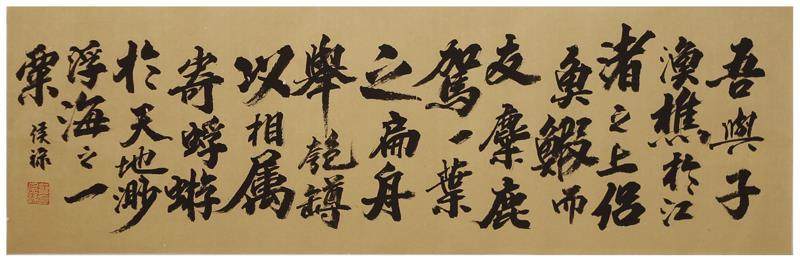 吾與子
漁樵於江
渚之上侶
魚鰕而
友麋鹿
駕一葉
之扁舟
舉匏罇
以相属
寄蜉蝣
於天地渺
浮海之一
粟